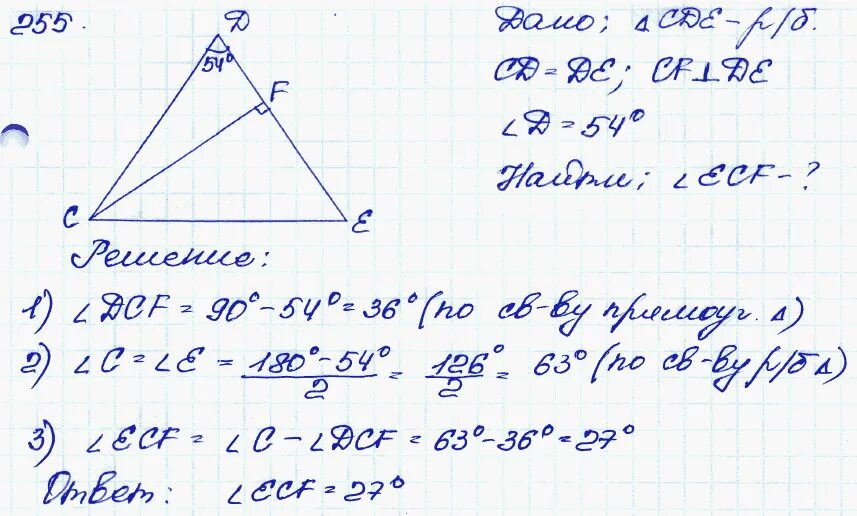 255.
D
54°
F
C
E
Дано; △CDE – р/б.
CD = DE; CF⊥DE
∠D = 54°
Найти; ∠ECF – ?
Решение:
1) ∠DCF = 90° – 54° = 36° (по св-ву прямоуг. △)
2) ∠C = ∠E = (180° – 54°)/2 = 126°/2 = 63° (по св-ву р/б △)
3) ∠ECF = ∠C – ∠DCF = 63° – 36° = 27°
Ответ: ∠ECF = 27°